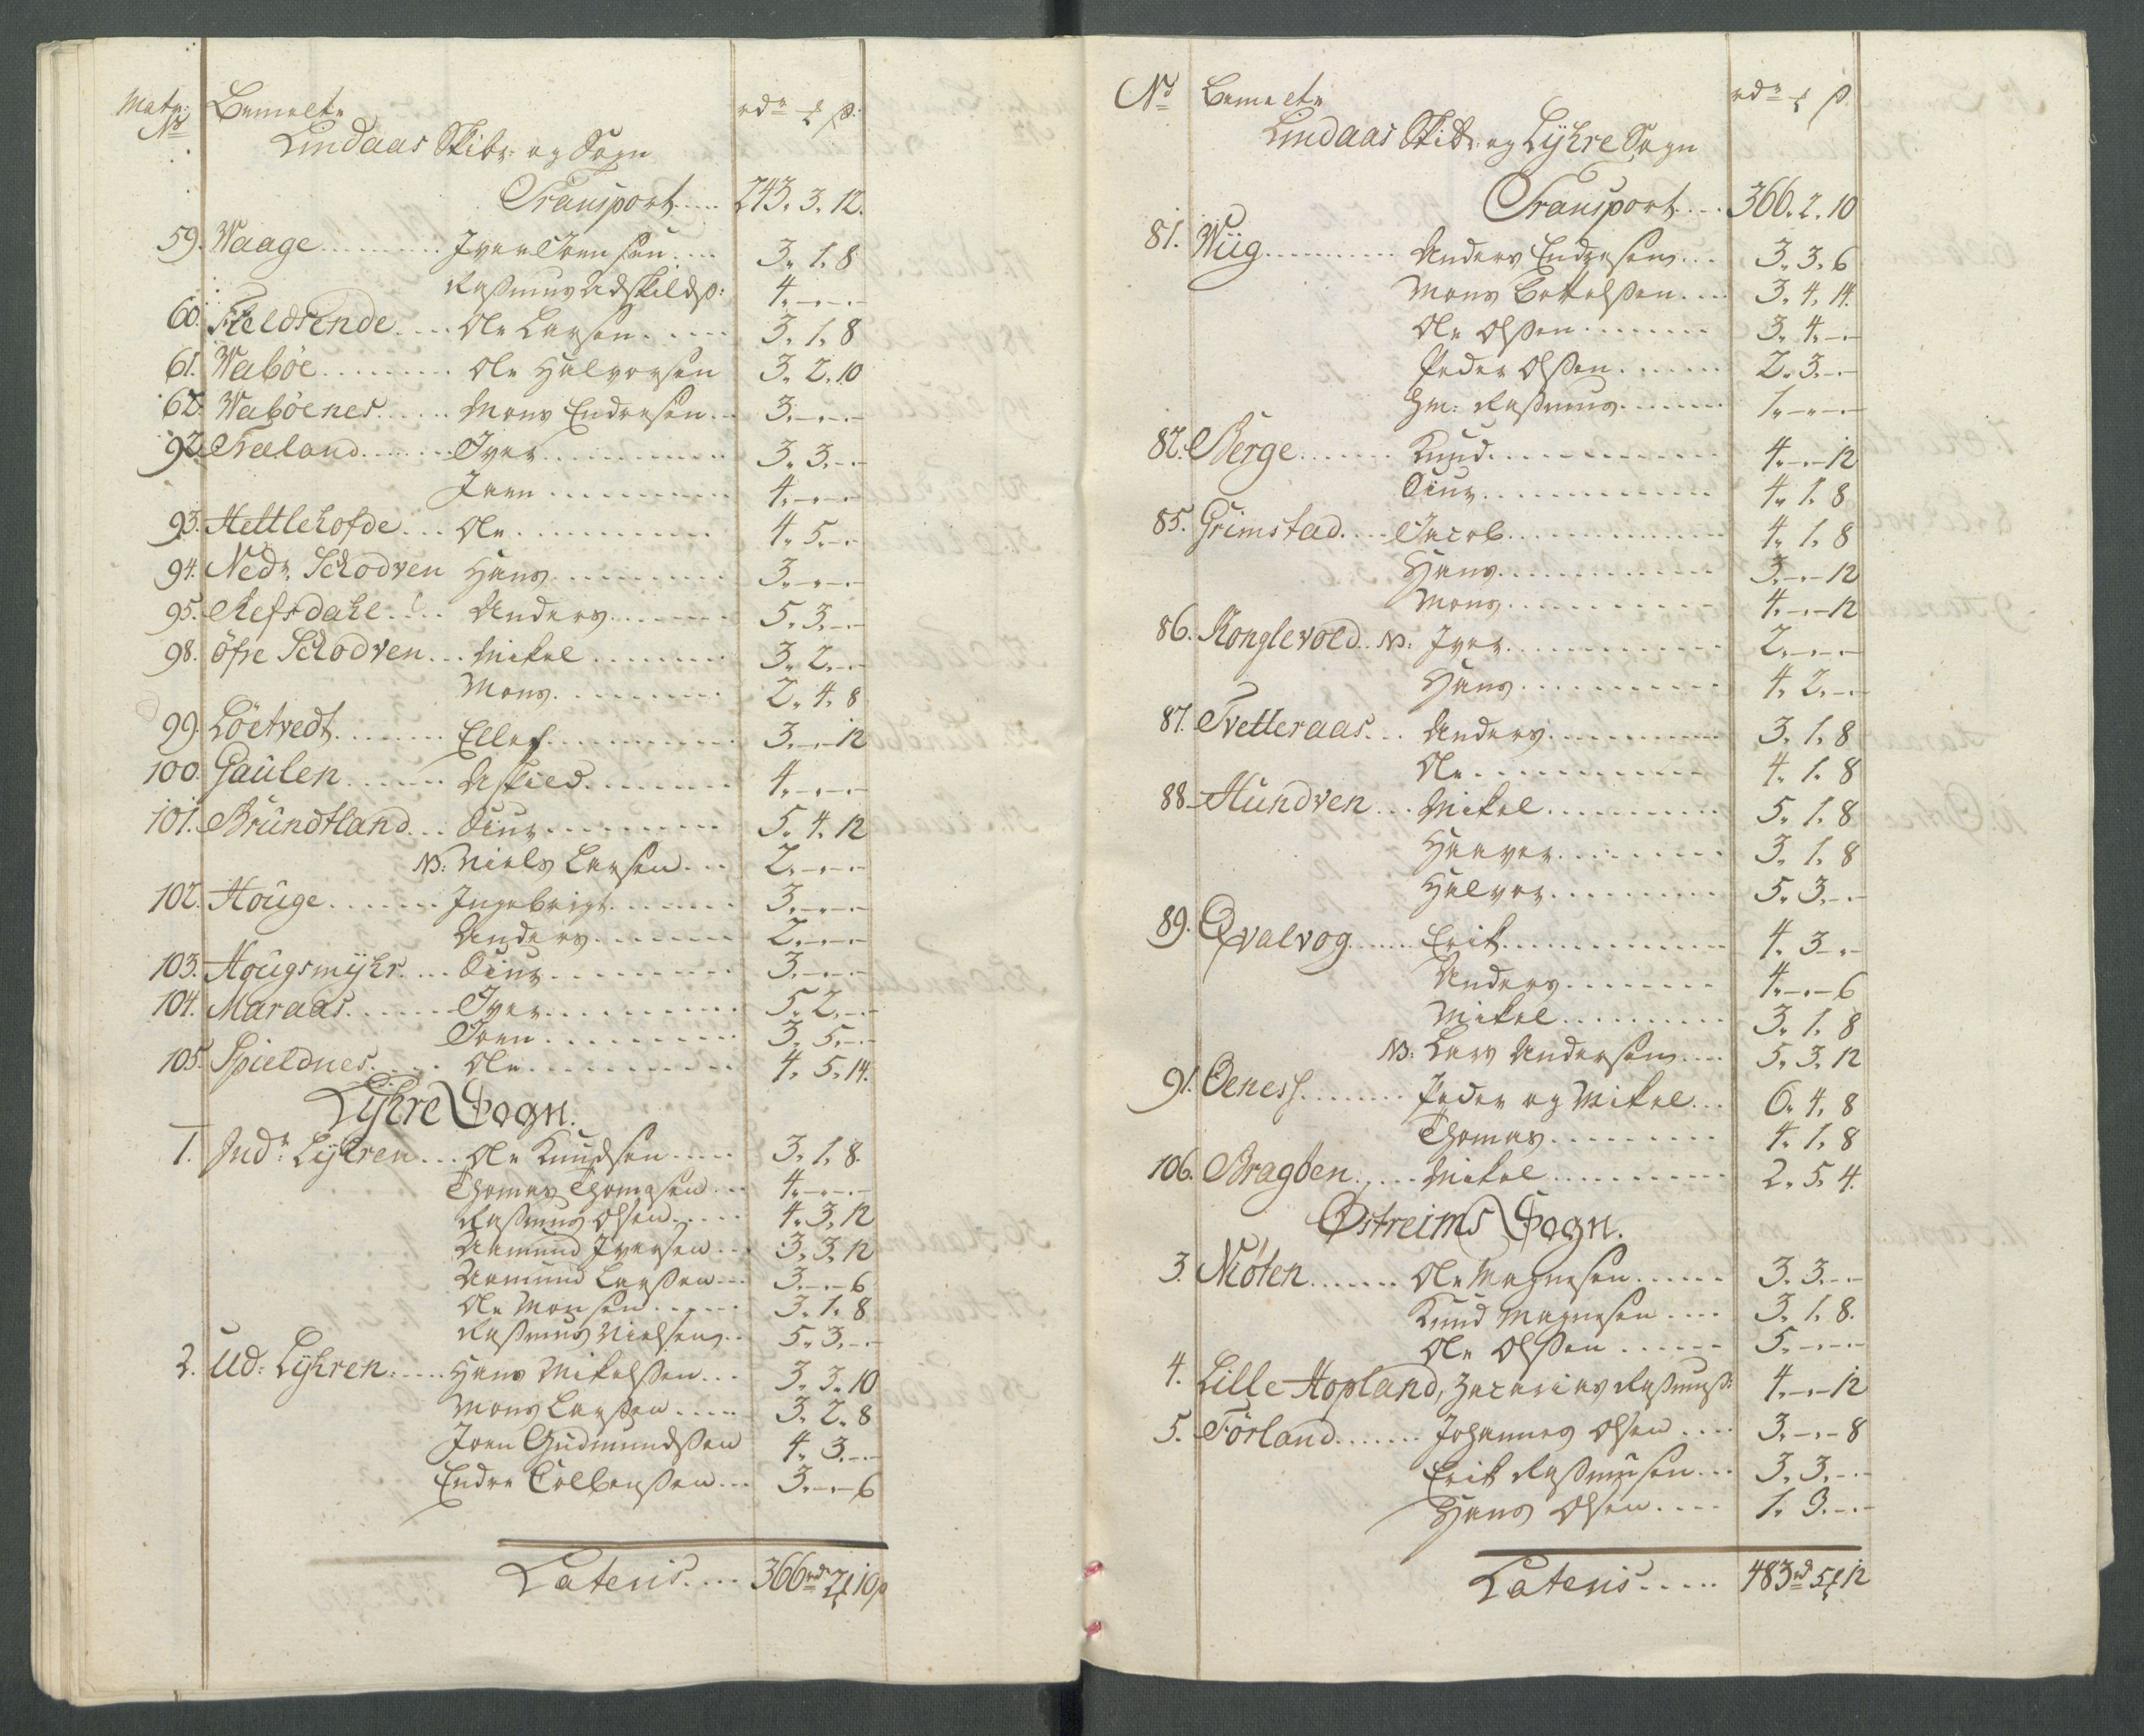 Matr: No Bemelte rdr ₰ ß.
Lindaas Skibr: og Sogn
Transport.... 243. 3. 12.
59. Waage......... Iver Joensen.... 3. 1. 8
Rasmus Adskilds: 4. -. -
60. Fieldsende.... Ole Larsen...... 3. 1. 8
61. Wabøe........ Ole Halvorsen 3. 2. 10
62. Wabøenes..... Mons Endresen... 3. -. -
92. Træland...... Iver............ 3. 3. -
Joen.......... 4. -. -
93. Hettlehofde... Ole............ 4. 5. -
94. Nedr. Schodven Hans.......... 3. -. -
95. Refsdahl.... Anders........ 5. 3. -
98. öfre Schodven... Mikel......... 3. 2. -
Mons.......... 2. 4. 8
99. Löetvedt........ Ellef............ 3. -. 12
100. Gaulen....... Askied.......... 4. -. -
101. Brundtland... Siur.......... 5. 4. 12
NB: Niels Larsen.... 2. -. -
102. Houge........ Ingebrigt....... 3. -. -
Anders......... 2. -. -
103. Hougsmÿhr.... Siur.......... 3. -. -
104. Maraas....... Iver........... 5. 2. -
Joen........... 3. 5. -
105. Spieldnes..... Ole............. 4. 5. 14.
Lÿhre Sogn.
1. Indr: Lÿhren... Ole Knudsen..... 3. 1. 8.
Thomas Thomasen... 4. -. -
Rasmus Olsen..... 4. 3. 12
Aamund Iversen... 3. 3. 12
Aamund Larsen... 3. -. 6
Ole Monsen...... 3. 1. 8
Rasmus Nielsen... 5. 3. -
2. Ud: Lÿhren..... Hans Mikelsen... 3. 3. 10
Mons Larsen..... 3. 2. 8
Joen Gudmundsen 4. 3. -
Endre Tolleusen... 3. -. 6
Lateris.... 366rd 2₰ 10ß
No Bemelte rdr ₰ ß.
Lindaas Skibr: og Lÿhre Sogn
Transport.... 366. 2. 10
81. Wiig.......... Anders Endresen... 3. 3. 6
Mons Bottelsen.... 3. 4. 14.
Ole Olsen........ 3. 4. -
Peder Olsen....... 2. 3. -
Hm: Rasmus....... 1. -. -
82. Berge....... Knud............ 4. -. 12
Siur............ 4. 1. 8
85. Grimstad.... Jacob............ 4. 1. 8
Hans............ 3. -. 12
Mons........... 4. -. 12
86. Konglevold.. NB: Iver............ 2. -. -
Hans........... 4. 2. -
87. Tvetteraas... Anders.......... 3. 1. 8
Ole............ 4. 1. 8
88. Hundven... Mikel.......... 5. 1. 8
Haaver......... 3. 1. 8
Halvor......... 5. 3. -
89. Qvalvog...... Erik............ 4. 3. -
Anders......... 4. -. 6
Mikel.......... 3. 1. 8
NB: Lars Andersen.... 5. 3. 12
91. Oeness........ Peder og Mikel... 6. 4. 8
Thomas......... 4. 1. 8
106. Bragöen..... Mikel........... 2. 5. 4.
Østreims Sogn.
3. Niöten....... Ole Magnesen...... 3. 3. -
Knud Magnesen.... 3. 1. 8.
Ole Olsen...... 5. -. -
4. Lille Hopland, Zacarias Rasmuss: 4. -. 12
5. Förland....... Johannes Olsen.... 3. -. 8
Erik Rasmusen... 3. 3. -
Hans Olsen.... 1. 3. -
Lateris..... 483rd 5₰ 12